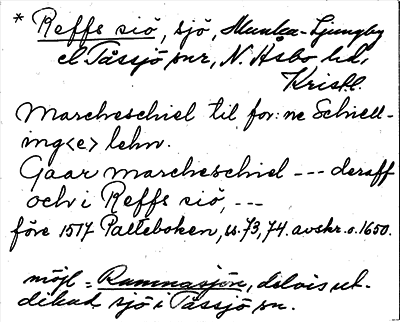 * Reffs siö, sjö, Munka-Ljungby
el Tåssjö snr, N. Åsbo hd,
Kristl.
Marcheschiel til for:ne Schiell-
ing<e> lehn.
Gaar marcheschiel --- deraff
och i Reffs siö, ---
före 1517 Palleboken, ss. 73, 74. avskr. o. 1650.
möjl = Ramnasjön, delvis ut-
dikad sjö i Tåssjö sn.